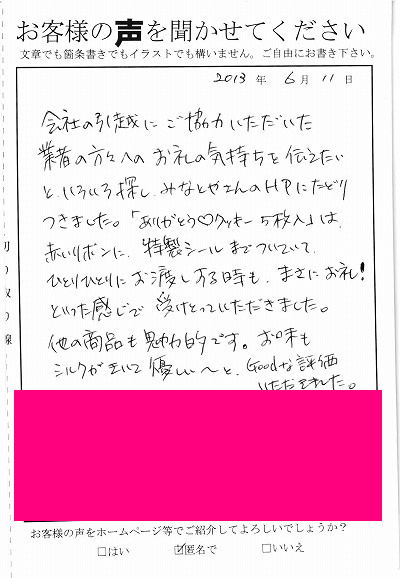 お客様の声を聞かせてください
文章でも箇条書きでもイラストでも構いません。ご自由にお書き下さい。
2013年6月11日
会社の引越にご協力いただいた
業者の方々へのお礼の気持ちを伝えたい
と、いろいろ探し、みなとやさんのHPにたどり
つきました。「ありがとう♡クッキー5枚入」は、
赤いリボンに、特製シールまでついていて、
ひとりひとりにお渡しする時も、まさにお礼!
といった感じで受けとっていただきました。
他の商品も魅力的です。お味も
シルクが玉いて優しい〜と、Goodな評価
いただきました。
切り取り線
お客様の声をホームページ等でご紹介してよろしいでしょうか?
□はい ☑匿名で □いいえ